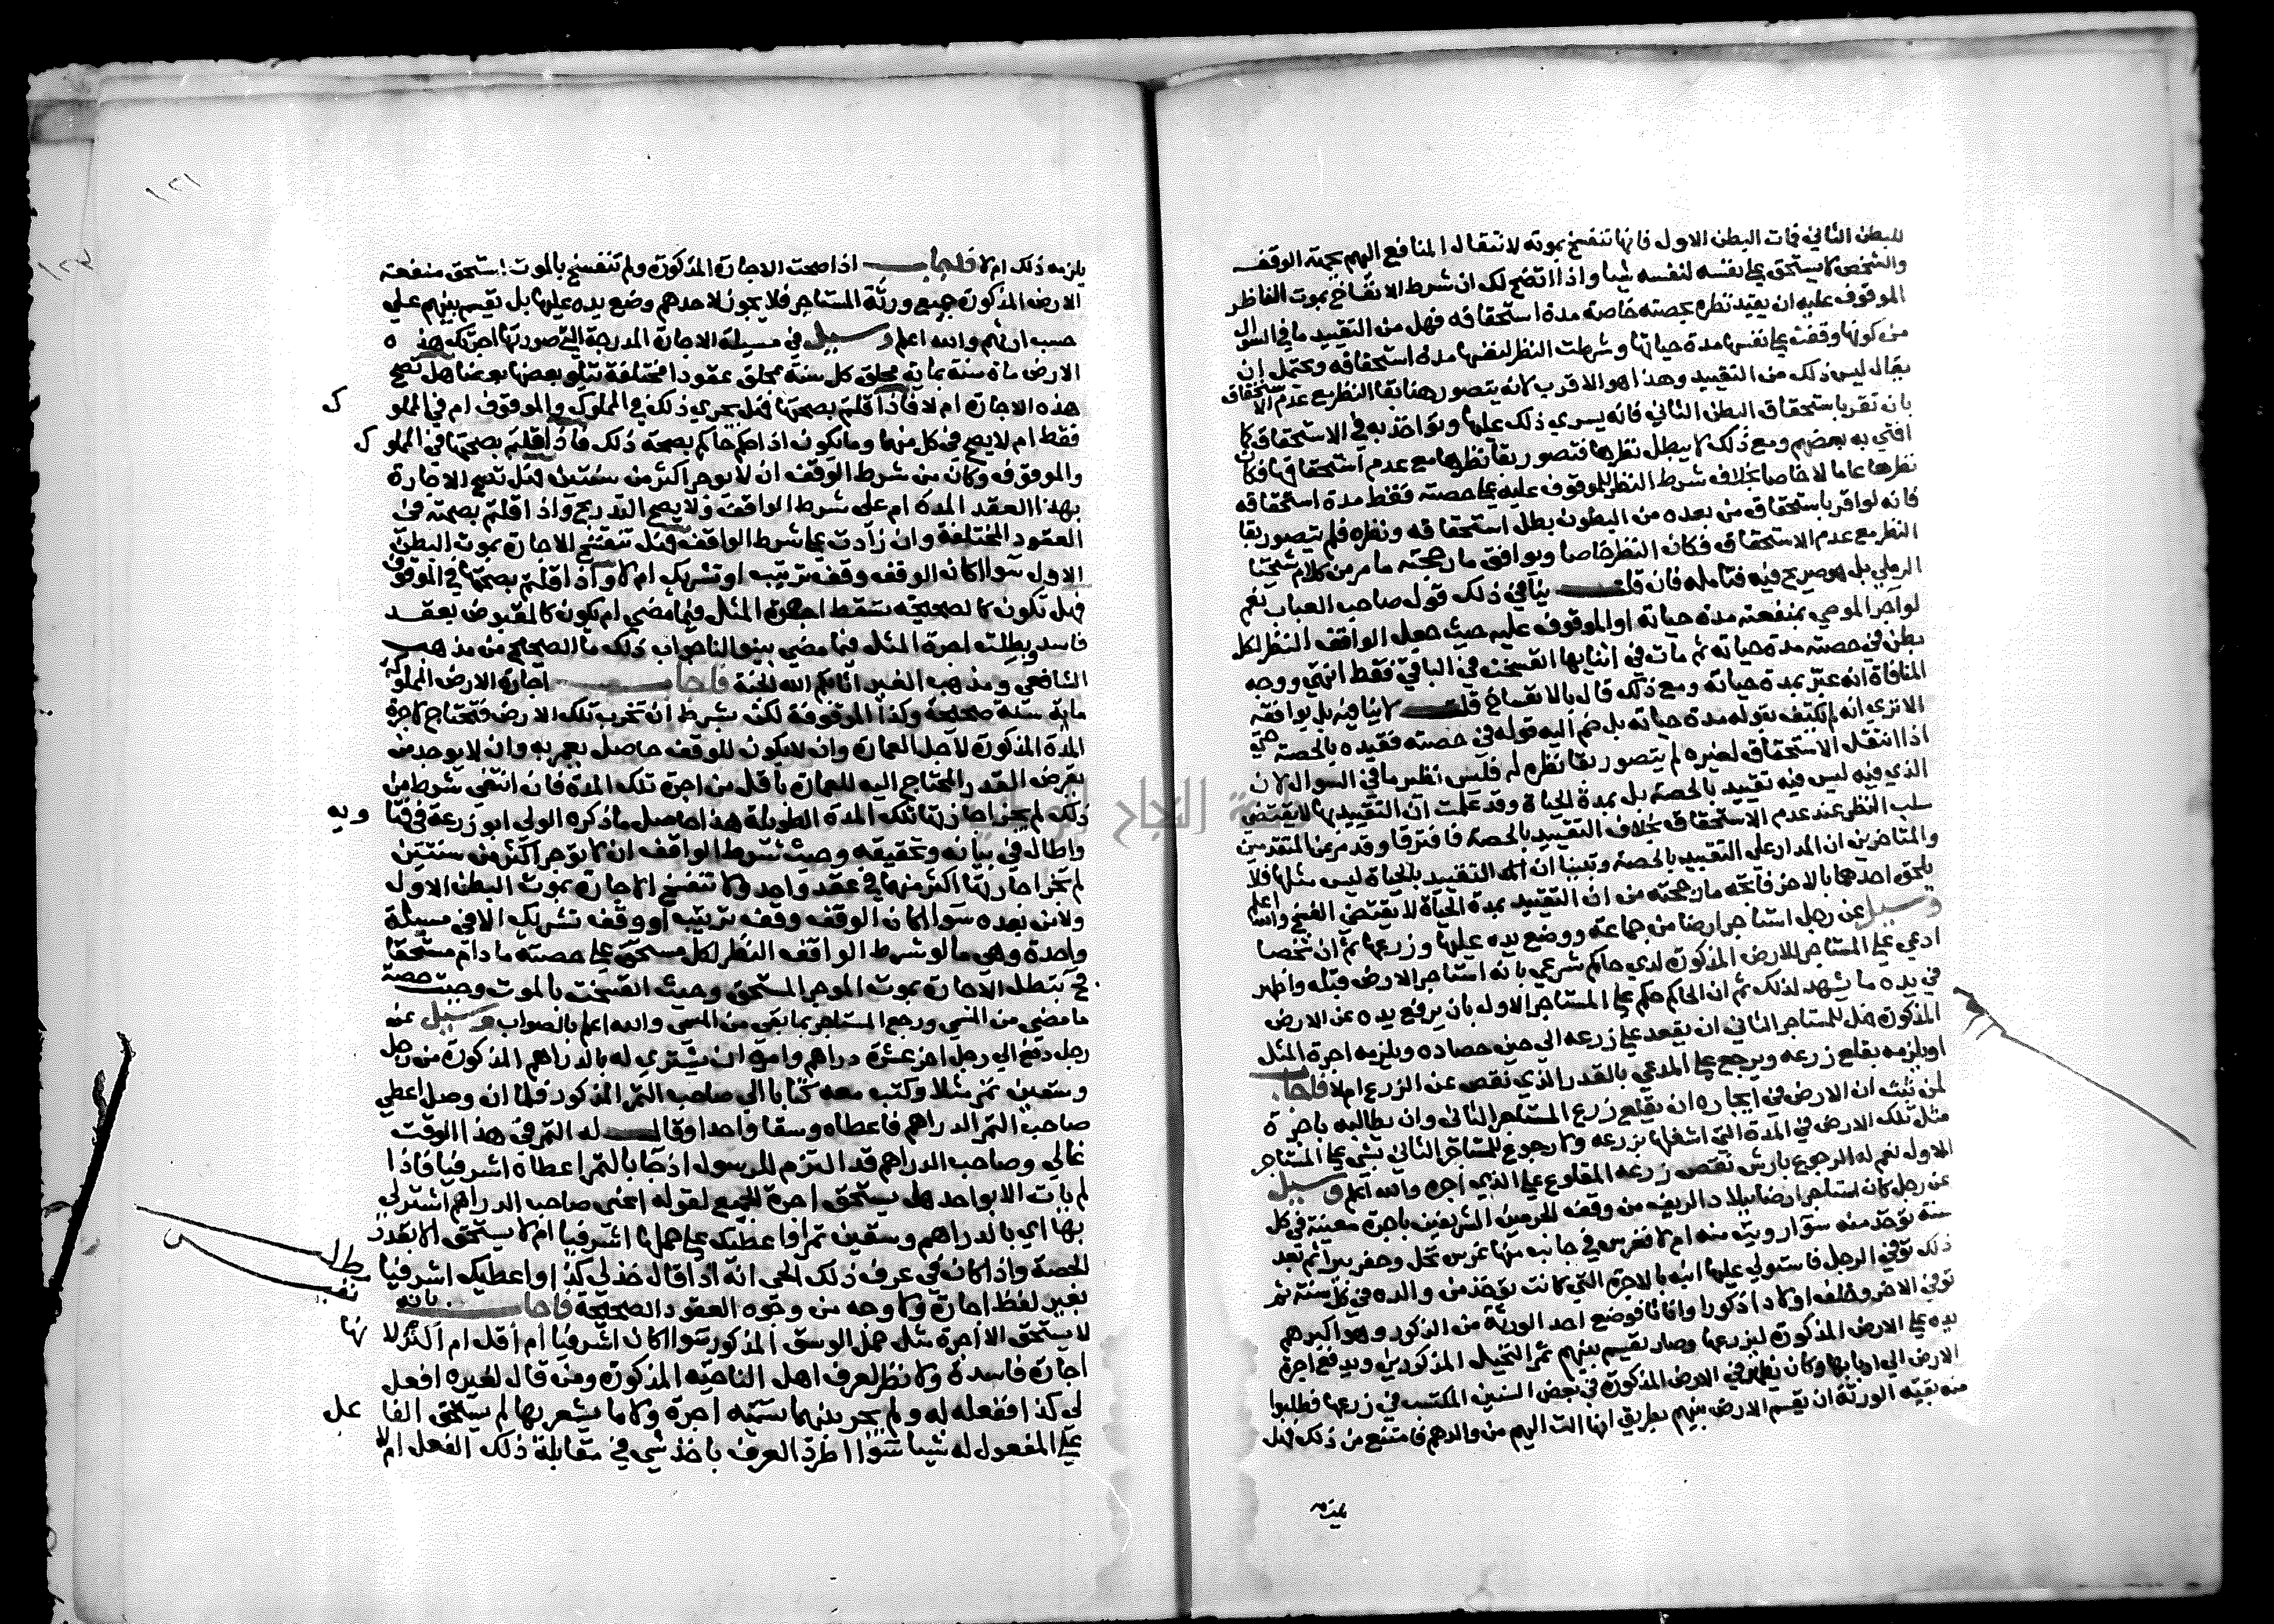 للبطن الثاني فمات البطن الاول فانها تنفسخ بموته لانتقال المنافع اليهم بجهة الوقف
والشخص لا يستحق على نفسه لنفسه شيا واذا اتضح لك ان شرط الانفساخ بموت الناظر
الموقوف عليه ان يقيد نظره بحصته خاصة مدة استحقاقه فهل من التقييد ما في السوال
من كونها وقفت على نفسها مدة حياتها وشرطت النظر لنفسها مدة استحقاقه ويحتمل ان
يقال ليس ذلك من التقييد وهذا هو الاقرب لانه يتصور هنا بقا النظر مع عدم الاستحقاق
بان تقر باستحقاق البطن الثاني فانه يسري ذلك عليها وتواخذ به في الاستحقاق كما
افتي به بعضهم ومع ذلك لا يبطل نظرها فتصور بقا نظرها مع عدم استحقاقها فكان
نظرها عاما لا خاصا بخلاف شرط النظر للموقوف عليه على حصته فقط مدة استحقاقه
فانه لو اقر باستحقاق من بعده من البطون بطل استحقاقه ونظره فلم يتصور بقا
النظر مع عدم الاستحقاق فكان النظر خاصا ويوافق ما رجحته ما مر من كلام شيخنا
الرملي بل هو صريح فيه فتامله فان قلت ينافي ذلك قول صاحب العباب نعم
لو اجر الموصي بمنفعته مدة حياته او الموقوف عليه حيث جعل الواقف النظر لكل
بطن في حصته مدة حياته ثم مات في اثنايها انفسخت في الباقي فقط انتهي ووجه
المنافاة انه عبر بمدة حياته ومع ذلك قال بالانفساخ قلت لا ينافيه بل يوافقه
الا تري انه لم يكتف بقوله مدة حياته بل ضم اليه قوله في حصته فقيده بالحصة حتي
اذا انتقل الاستحقاق لغيره لم يتصور بقا نظره له فليس نظير ما في السوال لان
الذي فيه ليس فيه تقييد بالحصة بل بمدة الحياة وقد علمت ان التقييد بها لا يقتضي
سلب النظر عند عدم الاستحقاق بخلاف التقييد بالحصة فافترقا وقد مر عن المتقدمين
والمتاخرين ان المدار على التقييد بالحصة وتبينا ان التقييد بالحياة ليس مثلها فلا
يلحق احدهما بالاخر فاتجه ما رجحته من ان التقييد بمدة الحياة لا يقتضي الفسخ والله اعلم
وسيل عن رجل استاجر ارضا من جماعة ووضع يده عليها وزرعها ثم ان شخصا
ادعي على المستاجر للارض المذكورة لدي حاكم شرعي بانه استاجر الارض قبله واظهر
في يده ما يشهد لذلك ثم ان الحاكم حكم على المستاجر الاول بان يرفع يده عن الارض
المذكورة فهل للمستاجر الثاني ان يقعد على زرعه الى حين حصاده ويلزمه اجرة المثل
او يلزمه بقلع زرعه ويرجع على المدعي بالقدر الذي نقص عن الزرع ام لا فاجاب
لمن ثبت ان الارض في ايجاره ان يقلع زرع المستاجر الثاني وان يطالبه باجرة
مثل تلك الارض في المدة التي اشغلها بزرعه ولا رجوع للمستاجر الثاني بشي على المستاجر
الاول نعم له الرجوع بارش نقص زرعه المقلوع على الذي اجره والله اعلم وسيل
عن رجل كان استاجر ارضا ببلاد الريف من وقف الحرمين الشريفين باجرة معينة في كل
سنة تؤخذ منه سوا رويت منه ام لا فغرس في جانب منها غرس نخل وحفر بيرا ثم بعد
ذلك توفي الرجل فاستولي عليها ابنه بالاجرة التي كانت تؤخذ من والده في كل سنة ثم
توفي الاخر وخلف اولادا ذكورا واناثا فوضع احد الورثة من الذكور وهو اكبرهم
يده على الارض المذكورة ليزرعها وصار يقسم بينهم ثمر النخيل المذكورين ويدفع اجرة
الارض الي اربابها وكان يظهر في الارض المذكورة في بعض السنين المكتسب في زرعها فطلبوا
منه بقية الورثة ان يقسم الارض بينهم بطريق انها الت اليهم من والدهم فامتنع من ذلك فهل
يلزمه
يلزمه ذلك ام لا فاجاب اذا صحت الاجارة المذكورة ولم تنفسخ بالموت استحق منفعة
الارض المذكورة جميع ورثة المستاجر فلا يجوز لاحدهم وضع يده عليها بل تقسم بينهم على
حسب ارثهم والله اعلم وسيل في مسيلة الاجارة المدرجة التي صورتها اجرتك هذه
الارض ماة سنة بماية محلق كل سنة بمحلق عقودا مختلفة يتلو بعضها بعضا هل تصح
هذه الاجارة ام لا فاذا قلتم بصحتها فهل يجري ذلك في المملوك والموقوف ام في المملوك
فقط ام لا يصح في كل منهما وما يكون اذا حكم حاكم بصحة ذلك فاذا قلتم بصحتها في المملوك
والموقوف وكان من شرط الوقف ان لا يوجر اكثر من سنتين فهل تصح الاجارة
بهذا العقد المدة ام على شرط الواقف ولا يصح التدريج واذا قلتم بصحته في
العقود المختلفة وان زادت على شرط الواقف فهل تنفسخ الاجارة بموت البطن
الاول سوا كان الوقف وقف ترتيب او تشريك ام لا واذا قلتم بصحتها في الموقوف
فهل تكون كالصحيحة بسقط اجرة المثل فيما مضي ام يكون كالمقبوض بعقد
فاسد وبطلت اجرة المثل فيما مضي بينوا لنا جواب ذلك ما الصحيح من مذهب
الشافعي ومذهب الغير اثابكم الله الجنة فاجاب اجارة الارض المملوكة
ماية سنة صحيحة وكذا الموقوفة لكن بشرط ان تخرب تلك الارض فتحتاج لاجرة
المدة المذكورة لاجل العمارة وان لا يكون للوقف حاصل يعمر به وان لا يوجد من
يقرض القدر المحتاج اليه للعمارة باقل من اجرة تلك المدة فان انتفي شرط من
ذلك لم يجز اجارتها تلك المدة الطويلة هذا حاصل ما ذكره الولي ابو زرعة في فتاويه
واطال في بيانه وتحقيقه وحيث شرط الواقف ان لا يوجر اكثر من سنتين
لم تجز اجارتها اكثر منهما في عقد واحد ولا تنفسخ الاجارة بموت البطن الاول
ولا من بعده سوا اكان الوقف وقف ترتيب او وقف تشريك الا في مسيلة
واحدة وهي ما لو شرط الواقف النظر لكل مستحق على حصته ما دام مستحقا
فح تبطل الاجارة بموت الموجر المستحق وحيث انفسخت بالموت وجبت حصة
ما مضي من المسمي ورجع المستاجر بما بقي من المسمي والله اعلم بالصواب وسيل عن
رجل دفع الي رجل اخر عشرة دراهم وامره ان يشتري له بالدراهم المذكورة من رجل
وسقين تمر مثلا وكتب معه كتابا الي صاحب التمر المذكور فلما ان وصل اعطي
صاحب التمر الدراهم فاعطاه وسقا واحدا وقال له التمر في هذا الوقت
غالي وصاحب الدراهم قد التزم للرسول اذ جا بالتمر اعطاه اشرفيا فاذا
لم يات الا بواحد هل يستحق اجرة الجميع لقوله اعني صاحب الدراهم اشتر لي
بها اي بالدراهم وسقين تمرا واعطيك على حملها اشرفيا ام لا يستحق الا بقدر
الحصة واذا كان في عرف ذلك الحي انه اذا قال خذ لي كذا واعطيك اشرفيا
بغير لفظ اجارة ولا وجه من وجوه العقود الصحيحة فاجاب بانه
لا يستحق الا اجرة مثل حمل الوسق المذكور سوا اكان اشرفيا ام اقل ام اكثر لانها
اجارة فاسدة ولا نظر لعرف اهل الناحية المذكورة ومن قال لغيره افعل
لي كذا ففعله له ولم يجر بينهما تسمية اجرة ولا ما يشعر بها لم يستحق الفاعل
على المفعول له شيا سوا اطرد العرف باخذ شي في مقابلة ذلك الفعل ام لا